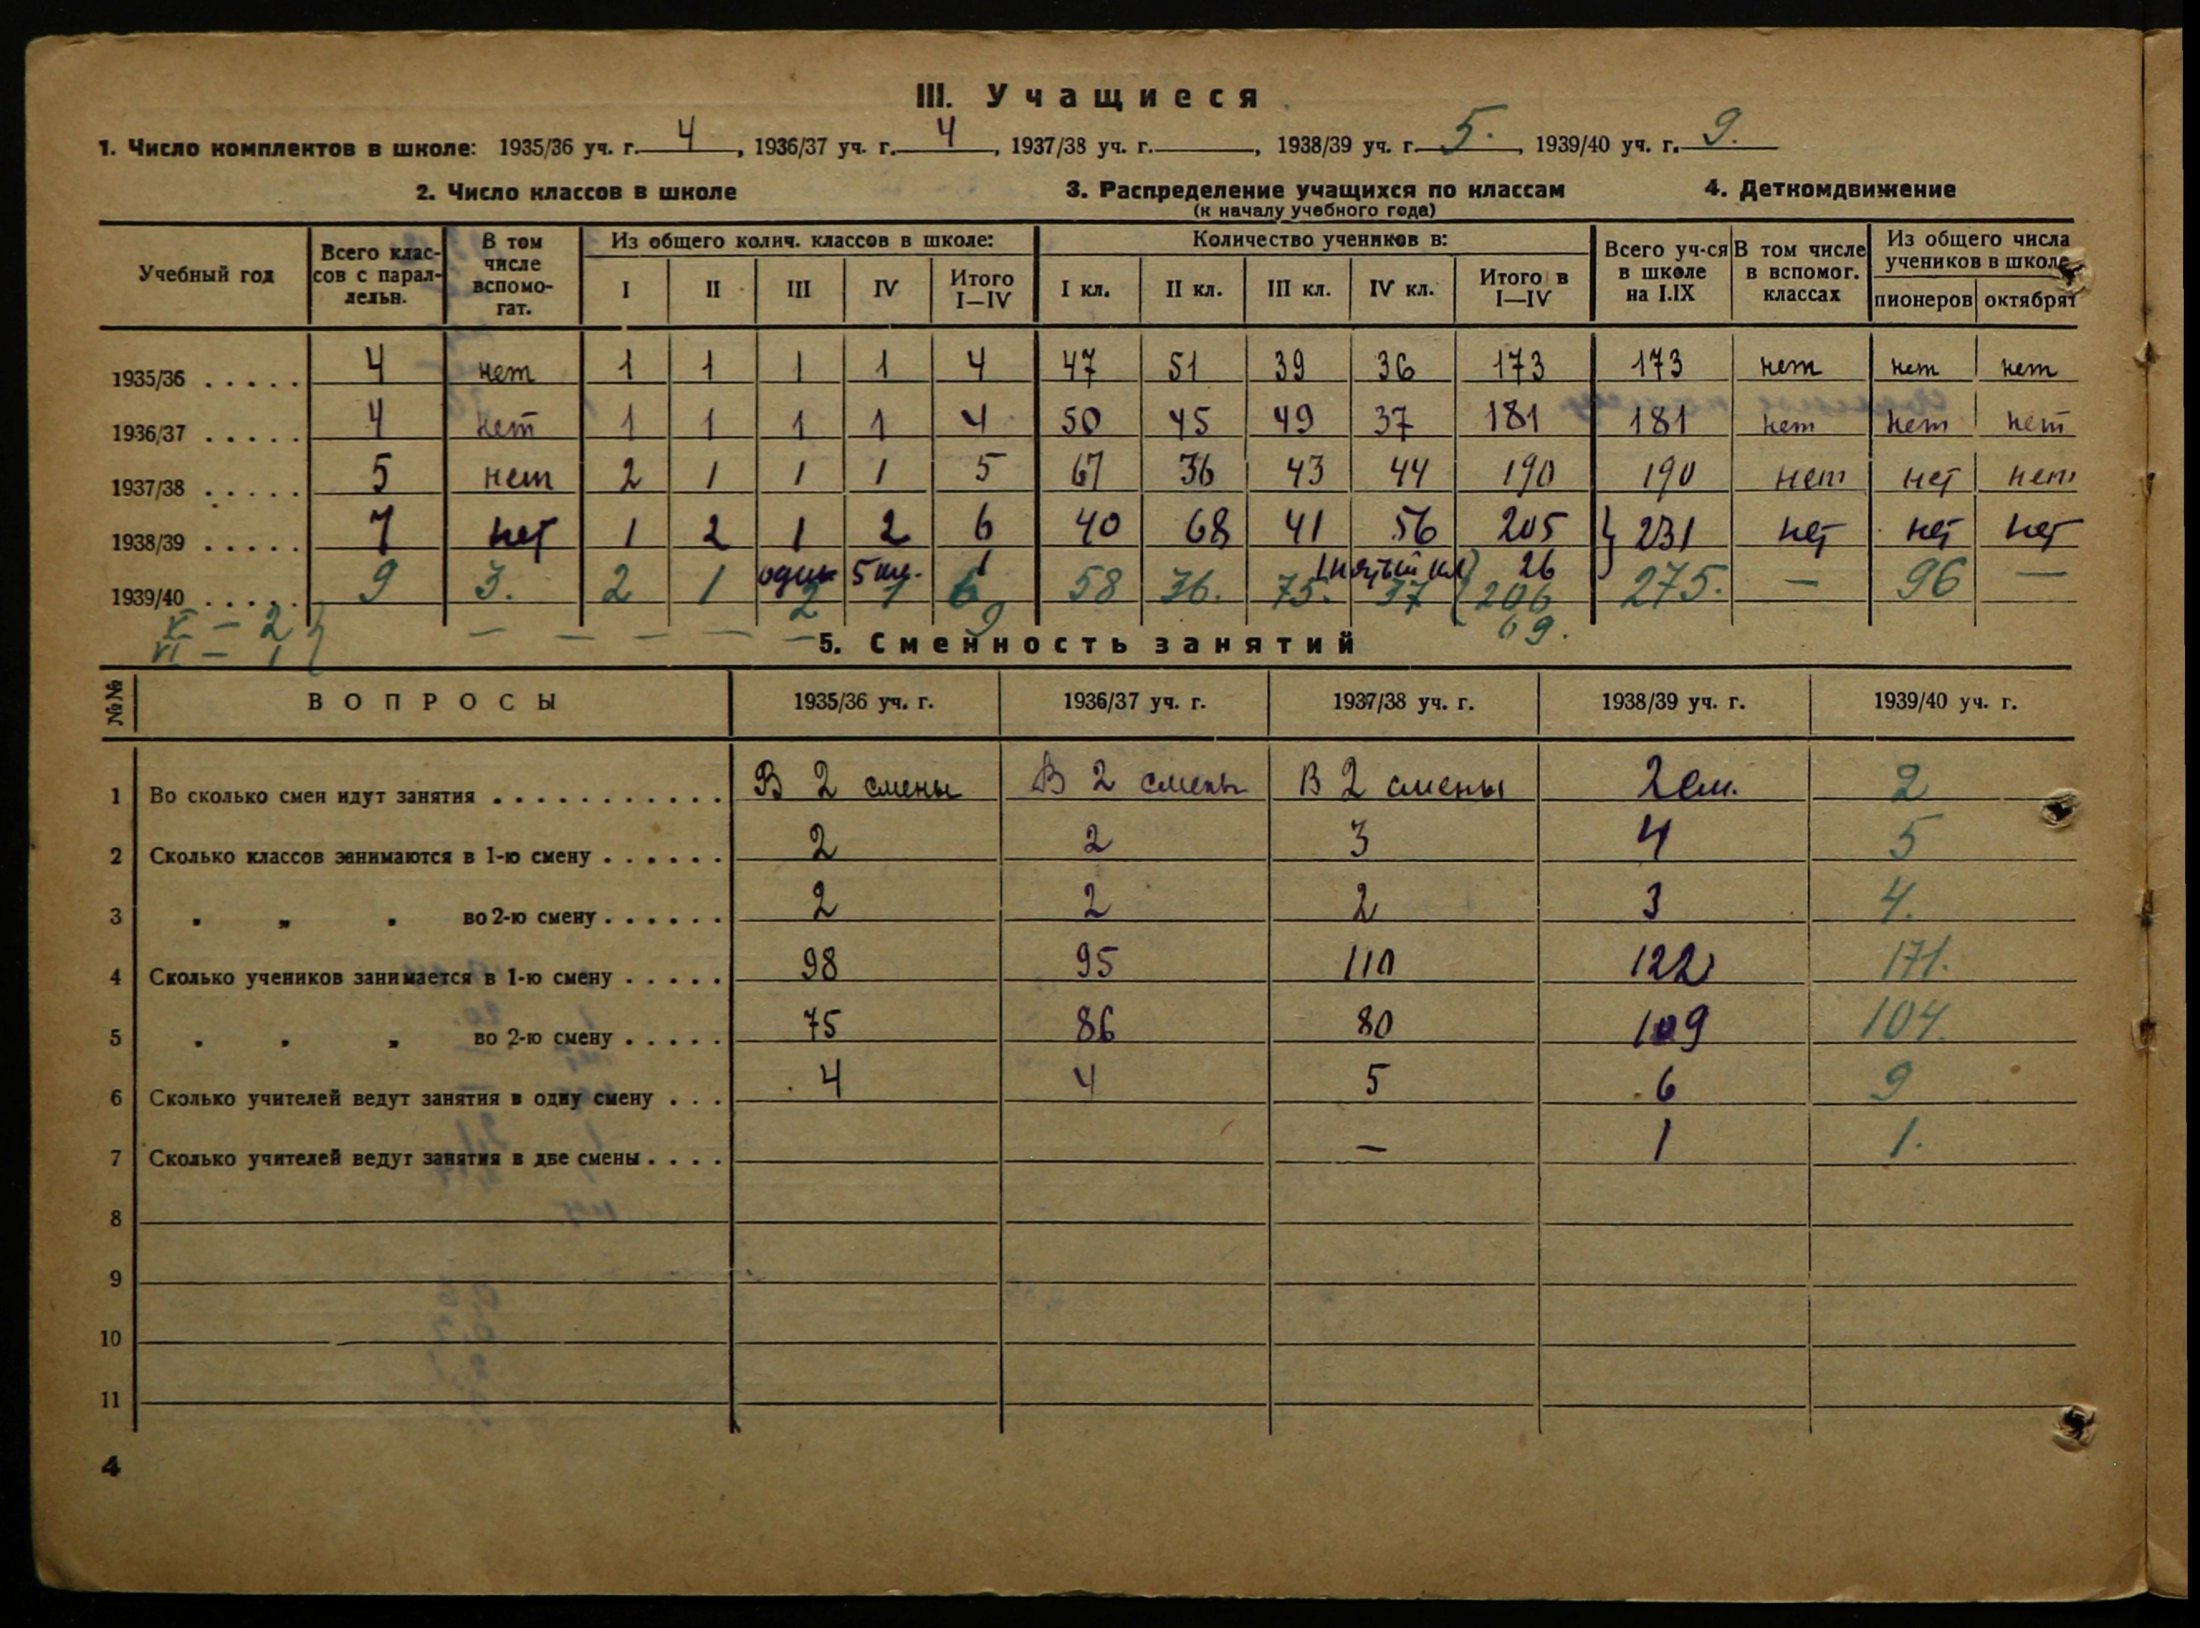 III. Учащиеся
1. Число комплектов в школе: 1935/36 уч. г. 4, 1936/37 уч. г. 4, 1937/38 уч. г. , 1938/39 уч. г. 5. , 1939/40 уч. г. 9.
2. Число классов в школе 3. Распределение учащихся по классам 4. Деткомдвижение
(к началу учебного года)
Учебный год Всего классов с параллельн. В том числе вспомогат. Из общего колич. классов в школе: Количество учеников в: Всего уч-ся в школе на I.IX В том числе в вспомог. классах Из общего числа учеников в школе
I II III IV Итого I—IV I кл. II кл. III кл. IV кл. Итого в I—IV пионеров октябрят
1935/36 . . . . . 4 нет 1 1 1 1 4 47 51 39 36 173 173 нет нет нет
1936/37 . . . . . 4 нет 1 1 1 1 4 50 45 49 37 181 181 нет нет нет
1937/38 . . . . . 5 нет 2 1 1 1 5 67 36 43 44 190 190 нет нет нет
1938/39 . . . . . 7 нет 1 2 1 2 6 40 68 41 56 205 231 нет нет нет
один 5 кл. 1 1 пятый кл 26
1939/40 . . . . . 9 3. 2 1 2 1 6 58 36. 75. 37 206 275. — 96 —
V — 2 9 69.
VI — 1 — — — — —
5. Сменность занятий
№№ ВОПРОСЫ 1935/36 уч. г. 1936/37 уч. г. 1937/38 уч. г. 1938/39 уч. г. 1939/40 уч. г.
1 Во сколько смен идут занятия . . . . . . . . . . . В 2 смены В 2 смены В 2 смены 2 см. 2
2 Сколько классов занимаются в 1-ю смену . . . . . . 2 2 3 4 5
3 " " " во 2-ю смену . . . . . . 2 2 2 3 4.
4 Сколько учеников занимается в 1-ю смену . . . . . 98 95 110 122 171.
5 " " " во 2-ю смену . . . . . 75 86 80 109 104.
6 Сколько учителей ведут занятия в одну смену . . . 4 4 5 6 9
7 Сколько учителей ведут занятия в две смены . . . . — 1 1.
8
9
10
11
4